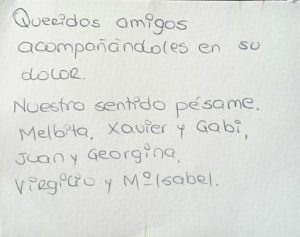 Queridos amigos
acompañàndoles en su
dolor.
Nuestro sentido pésame.
Melbita, Xavier y Gabi,
Juan y Georgina,
Virgilio y MªIsabel.